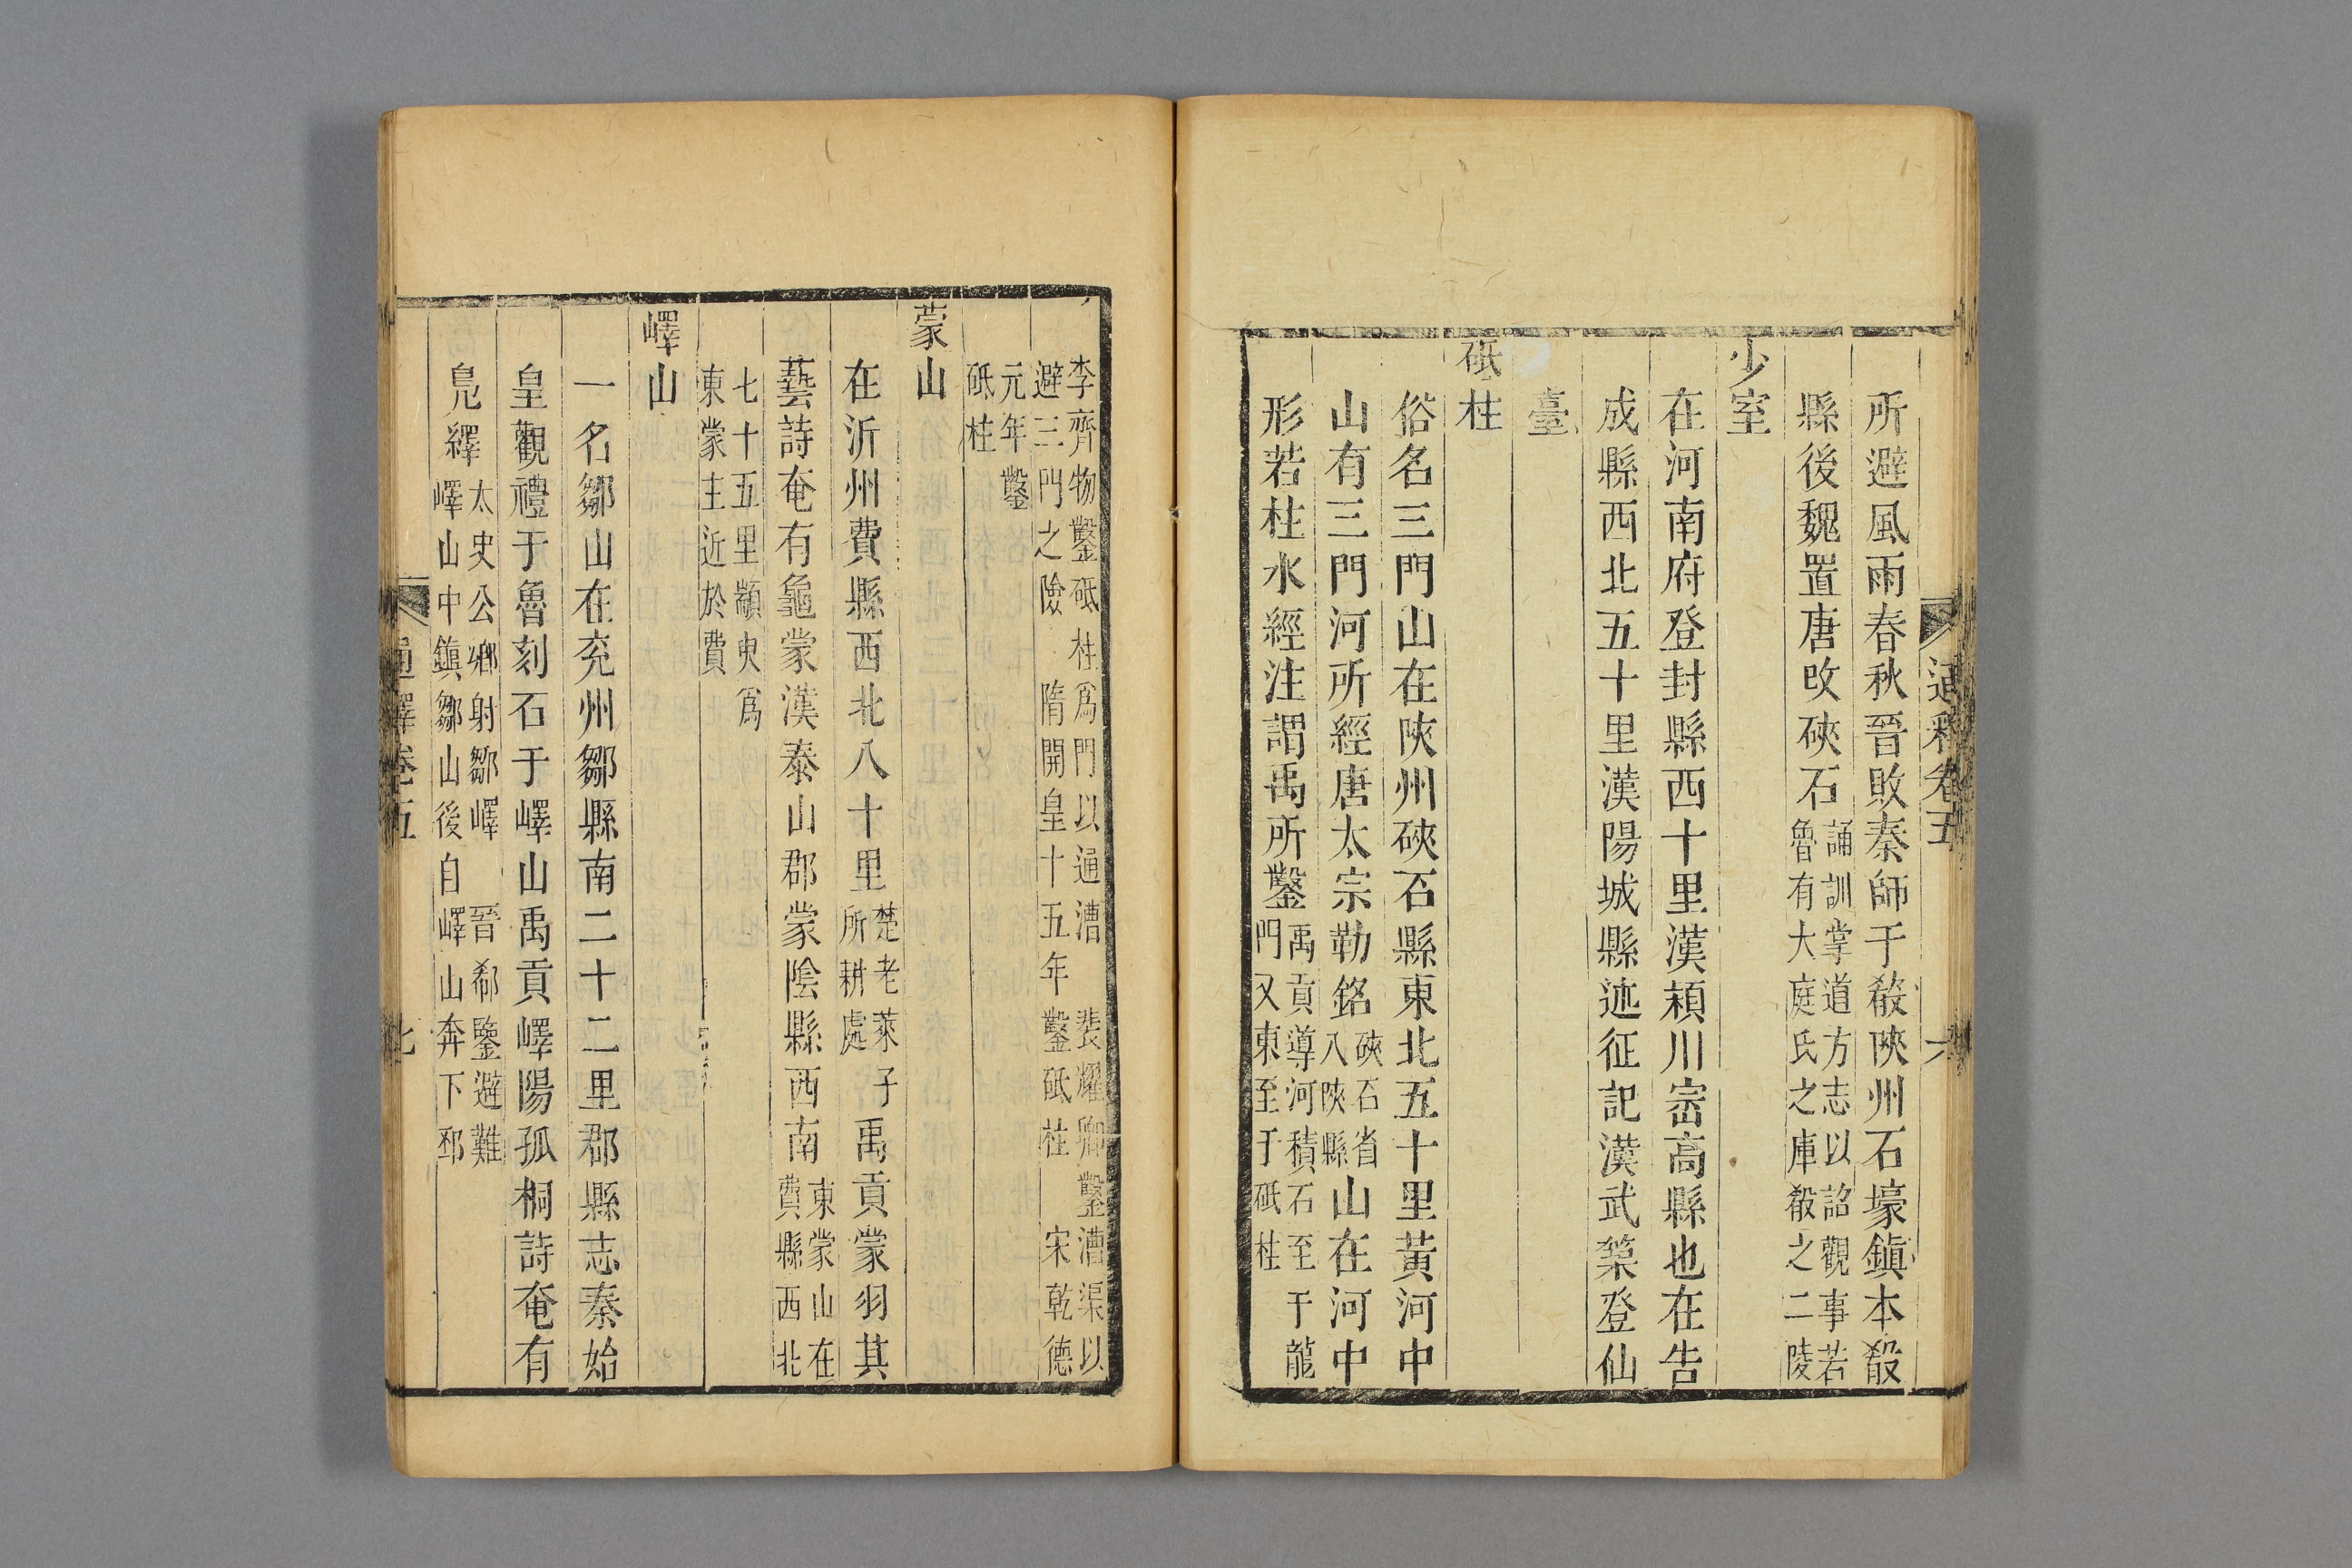 通釋卷五
六
所避風雨春秋晉敗秦師于殽陝州石壕鎮本殽
縣後魏置唐改硤石誦訓掌道方志以詔觀事若
魯有大庭氏之庫殽之二陵
少室
在河南府登封縣西十里漢潁川崈高縣也在告
成縣西北五十里漢陽城縣迹征記漢武築登仙
臺
砥柱
俗名三門山在陝州硤石縣東北五十里黃河中
山有三門河所經唐太宗勒銘硤石省
入陝縣山在河中
形若柱水經注謂禹所鑿禹貢導河積石至于龍
門又東至于砥柱
李齊物鑿砥柱爲門以通漕 裴耀卿鑿漕渠以
避三門之險 隋開皇十五年鑿砥柱 宋乾德
元年鑿
砥柱
蒙山
在沂州費縣西北八十里楚老萊子
所耕處禹貢蒙羽其
藝詩奄有龜蒙漢泰山郡蒙陰縣西南東蒙山在
費縣西北
七十五里顓臾爲
東蒙主近於費
嶧山
一名鄒山在兖州鄒縣南二十二里郡縣志秦始
皇觀禮于魯刻石于嶧山禹貢嶧陽孤桐詩奄有
鳧繹太史公鄉射鄒嶧 晉郗鑒避難
嶧山中鎮鄒山後自嶧山奔下邳
通釋卷五
七